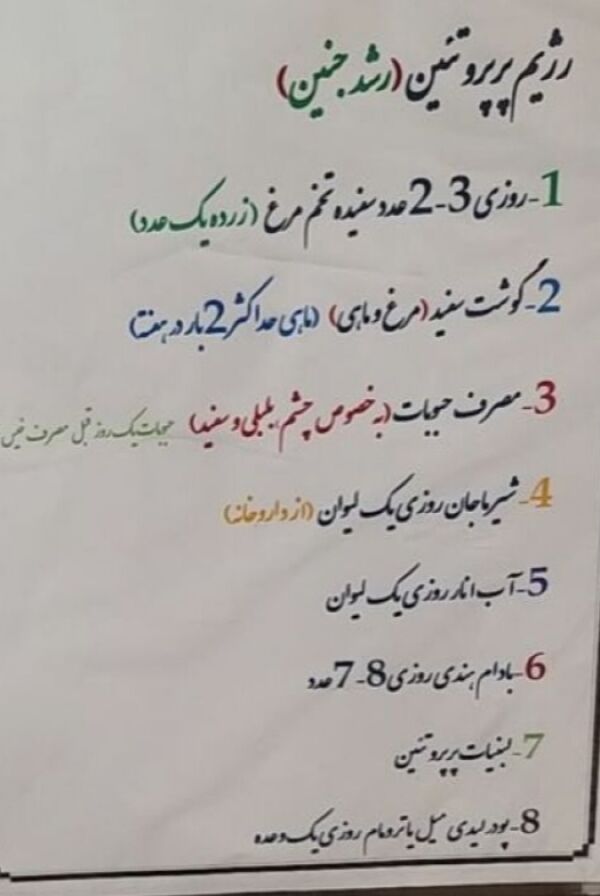 رژیم پرپروتئین (رشد جنین)
1-روزی 3-2 عدد سفیده تخم مرغ (زرده یک عدد)
2-گوشت سفید (مرغ و ماهی) (ماهی حداکثر 2 بار در هفته)
3-مصرف حبوبات (به خصوص چشم بلبلی و سفید) حبوبات یک روز قبل مصرف خیس
4-شیر ماجان روزی یک لیوان (از داروخانه)
5-آب انار روزی یک لیوان
6-بادام هندی روزی 8-7 عدد
7-لبنیات پرپروتئین
8-پودر لیدی میل یا ترومام روزی یک وعده